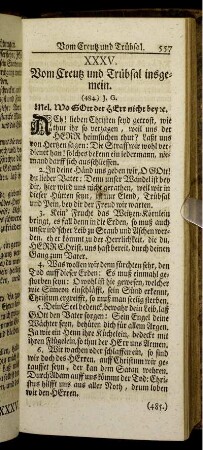 Vom Creutz und Trübsal. 557
XXXV.
Vom Creutz und Trübsal insge-
mein.
(484.) J. G.
Mel. Wo GOtt der HErr nicht bey ꝛc.
ACh! lieben Christen seyd getrost, wie
thut ihr so verzagen, weil uns der
HERR heimsuchen thut? Laßt uns
von Hertzen sagen: Die Straff wir wohl ver-
dienet han, solches bekenn ein iedermann, nie-
mand darff sich ausschliessen.
2. In deine Händ uns geben wir, O GOtt
du lieber Vater: Denn unser Wandel ist bey
dir, hier wird uns nicht gerathen, weil wir in
dieser Hütten seyn, ist nur Elend, Trübsal
und Pein, bey dir der Freud wir warten.
3. Kein Frucht das Weitzen-Körnlein
bringt, es fall denn in die Erden, so muß auch
unser irrdscher Leib zu Staub und Aschen wer-
den, eh er kommt zu der Herrlichkeit, die du,
HERR CHrist, uns hast bereit, durch deinen
Gang zum Vater.
4. Was wollen wir denn fürchten sehr, den
Tod auff dieser Erden: Es muß einmahl ge-
storben seyn: O wohl ist ihm geschehen, welcher
wie Simeon einschläfft, sein Sünd erkennt,
Christum ergreifft, so muß man seelig sterben.
5. Dein Seel bedenck, bewahr dein Leib, laß
GOtt den Vater sorgen: Sein Engel deine
Wächter seyn, behüten dich für allem Argen,
Ja wie ein Henn ihr Küchelein, bedeckt mit
ihren Flügelein, so thut der HErr uns Armen.
6. Wir wachen oder schlaffen ein, so sind
wir doch des HErren, auff Christum wir ge-
tauffet seyn, der kan dem Satan wehren.
Durch Adam auff uns kömmt der Tod: Chri-
stus hilfft uns aus aller Noth, drum loben
wir den HErren.
(485.)